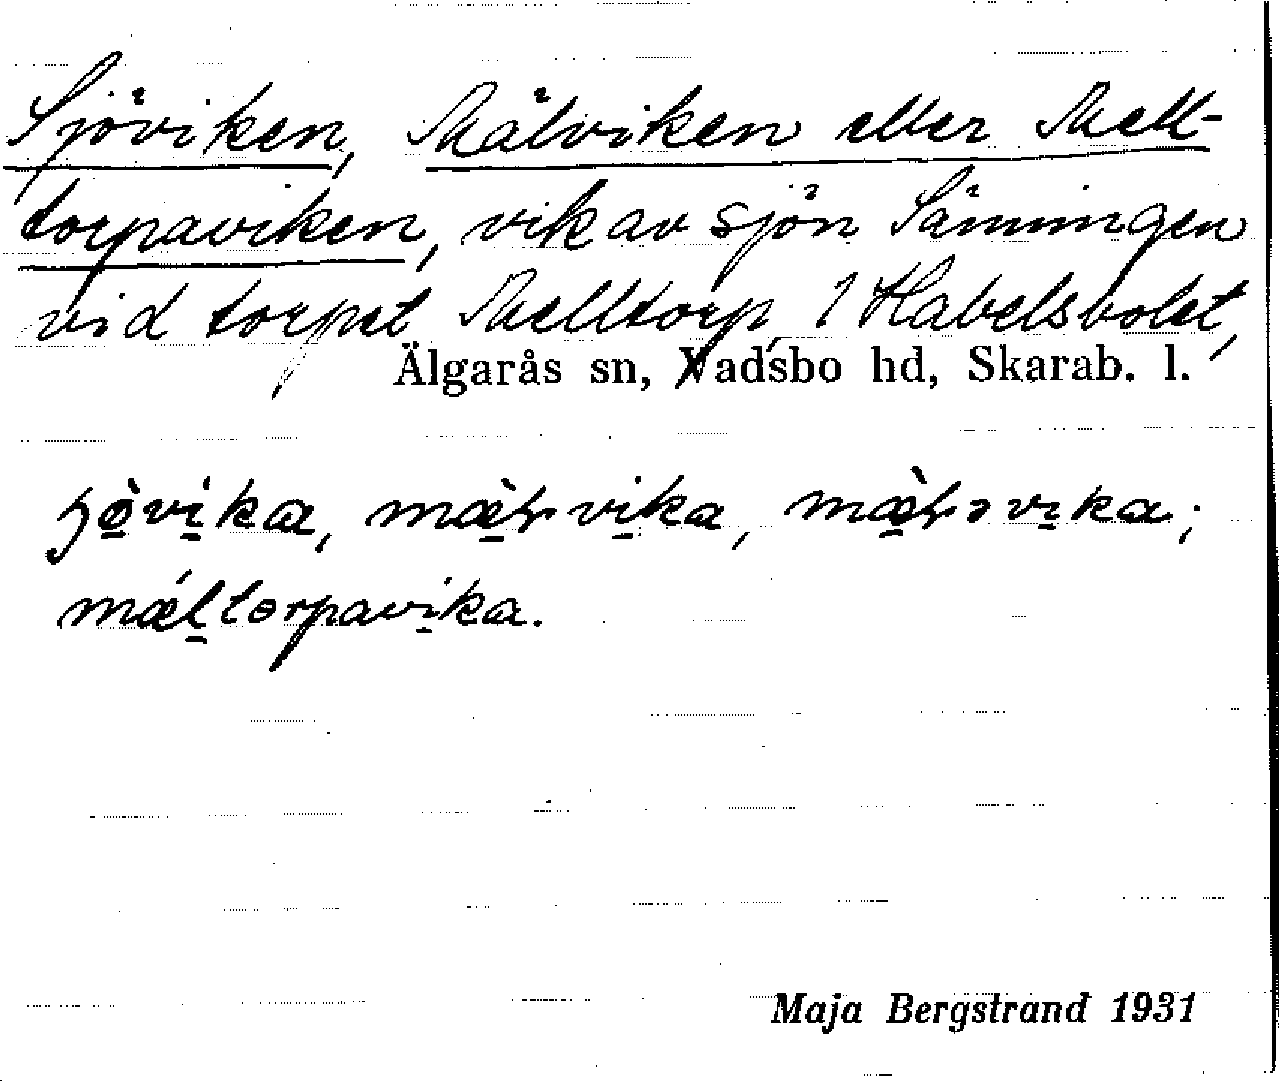 Sjöviken, Mälviken eller Mell-
torpaviken, vik av sjön Sänningen
vid torpet Melltorp, 1 Habelsbolet,
Älgarås sn, Vadsbo hd, Skarab. l.
vika, vika, vika;
mǽltorpavika.
Maja Bergstrand 1931